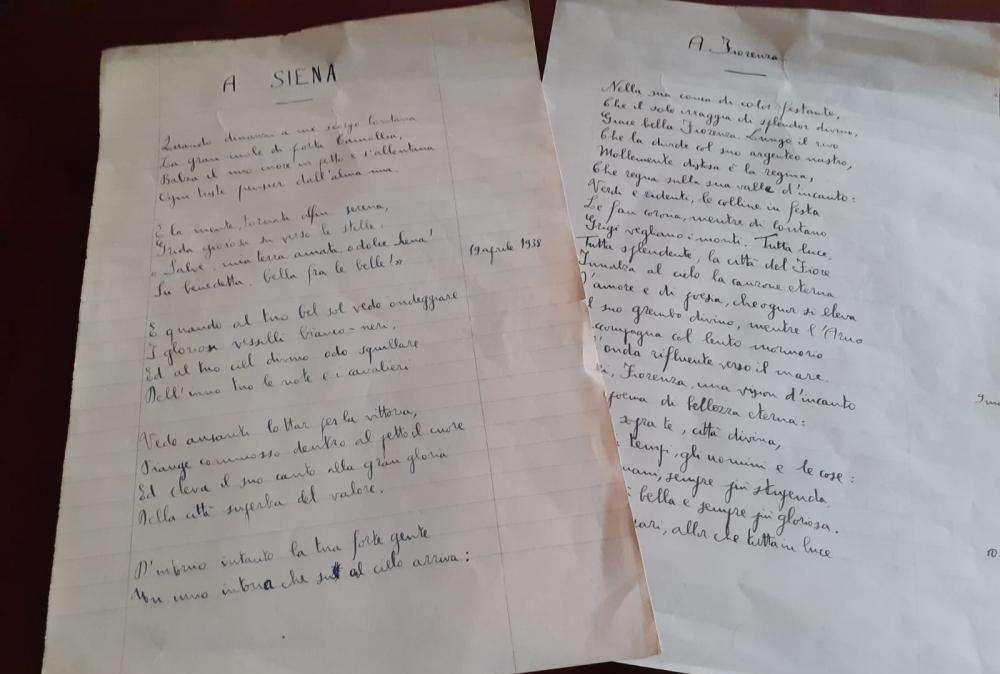 A SIENA
Quando dinanzi a me scorgo lontana
La gran mole di porta Camollia,
Balza il mio cuore in petto e s'allontana
Ogni triste pensier dall'alma mia.
E la mente, tornata alfin serena,
Grida gioiosa su verso le stelle:
"Salve, mia terra amata, o dolce Siena!
Tu benedetta, bella fra le belle!"
19 aprile 1938
E quando al tuo bel sol vedo ondeggiare
I gloriosi vessilli bianco-neri,
Ed al tuo ciel divino odo squillare
Dell'inno tuo le note e i cavalieri
Vedo ansanti lottar per la vittoria,
Piange commosso dentro al petto il cuore
Ed eleva il suo canto alla gran gloria
Della città superba del valore.
D'intorno intanto la tua forte gente
Un inno intona che al cielo arriva:
A Fiorenza
Nella sua conca di color festante,
Che il sole irraggia di splendor divino,
Giace bella Fiorenza. Lungo il rivo
Che la divide col suo argenteo nastro,
Mollemente distesa è la regina,
Che regna sulla sua valle d'incanto:
Verdi e ridenti, le colline in festa
Le fan corona, mentre di lontano
Grigi vegliano i monti. Tutta luce,
Tutta splendente, la città del Fiore
Innalza al cielo la canzone eterna
D'amore e di poesia, che ognor si leva
suo grembo divino, mentre l'Arno
compagna col lento mormorio
l'onda rifluente verso il mare.
Fiorenza, una vision d'incanto
poema di bellezza eterna:
sopra te, città divina,
tempi, gli uomini e le cose:
sempre più stupenda,
bella e sempre più gloriosa.
allor che tutta in luce